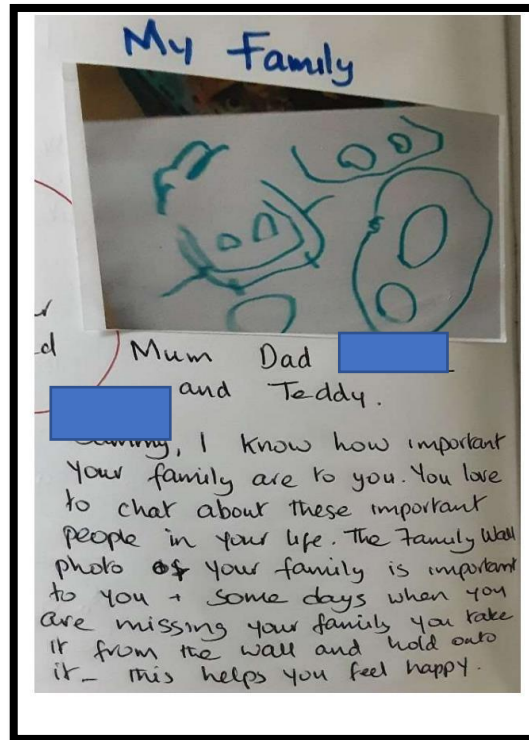 My Family
Mum Dad
and Teddy.
I know how important
your family are to you. You love
to chat about these important
people in your life. The Family Wall
photo of your family is important
to you + some days when you
are missing your family you take
it from the wall and hold onto
it - this helps you feel happy.